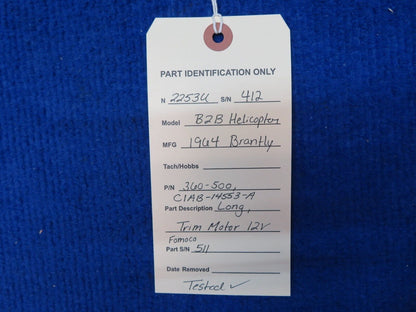 PART IDENTIFICATION ONLY
N 2253U S/N 412
Model B2B Helicopter
MFG 1964 Brantly
Tach/Hobbs
P/N 360-500,
C1AB-14553-A
Part Description Long,
Trim Motor 12V
Fomoco
Part S/N 511
Date Removed
Tested ✓